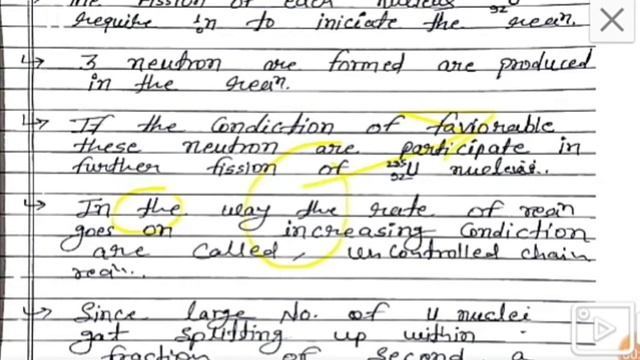 the fission of each nucleus 92
require ¹₀n to iniciate the rean.
↳ 3 neutron are formed are produced
in the rean.
↳ If the Condiction of faviorable
these neutron are participate in
further fission of ²³⁵₉₂U nucleus..
↳ In the way the rate of rean
goes on increasing Condiction
are called, uncontrolled chain
rean..
↳ Since large No. of U nuclei
gat splitting up within
fraction of second a